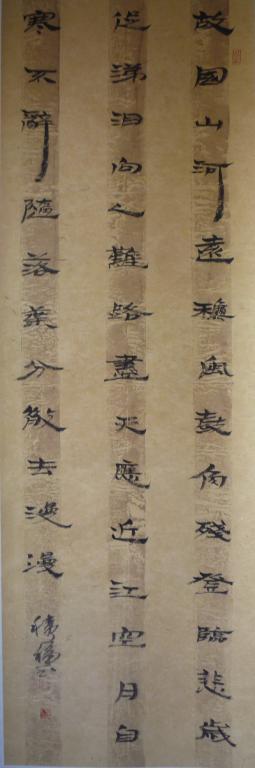 故國山河遠穐風鼓角殘登臨悲歲
促涕泪向人難路盡天應近江空月自
寒不辭隨落葉分散去漫